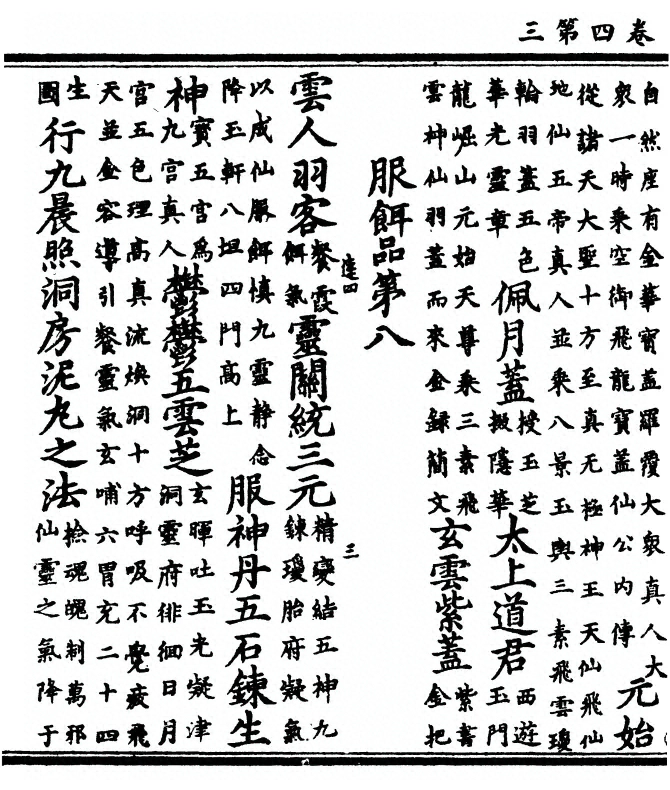 卷四第三
自然座有金華寶蓋羅覆大衆真人大
衆一時乘空御飛龍寶蓋仙公内傳
元始
從諸天大聖十方至真无極神王天仙飛仙
地仙五帝真人並乘八景玉輿三素飛雲瓊
輪羽蓋五色
華光靈章
佩月蓋
授玉芝
掇隱華
太上道君
西遊
玉門
龍崛山元始天尊乘三素飛
雲神仙羽蓋而來金録簡文
玄雲紫蓋
紫書
金把
服餌品第八
雲人羽客
餐霞
餌氣
靈關統三元
精變結五神九
鍊瓊胎府凝氣
四
三
以成仙服餌慎九靈静念
降玉軒八坦四門高上
服神丹五石鍊生
神
寶五宫爲
九宫真人
欝欝五雲芝
玄暉吐玉光凝津
洞靈府徘徊日月
宫五色理高真流煥洞十方呼吸不覺疲飛
天並金容導引餐靈氣玄哺六胃充二十四
生
圖
行九晨照洞房泥丸之法
捡魂魄制萬邪
仙靈之氣降于